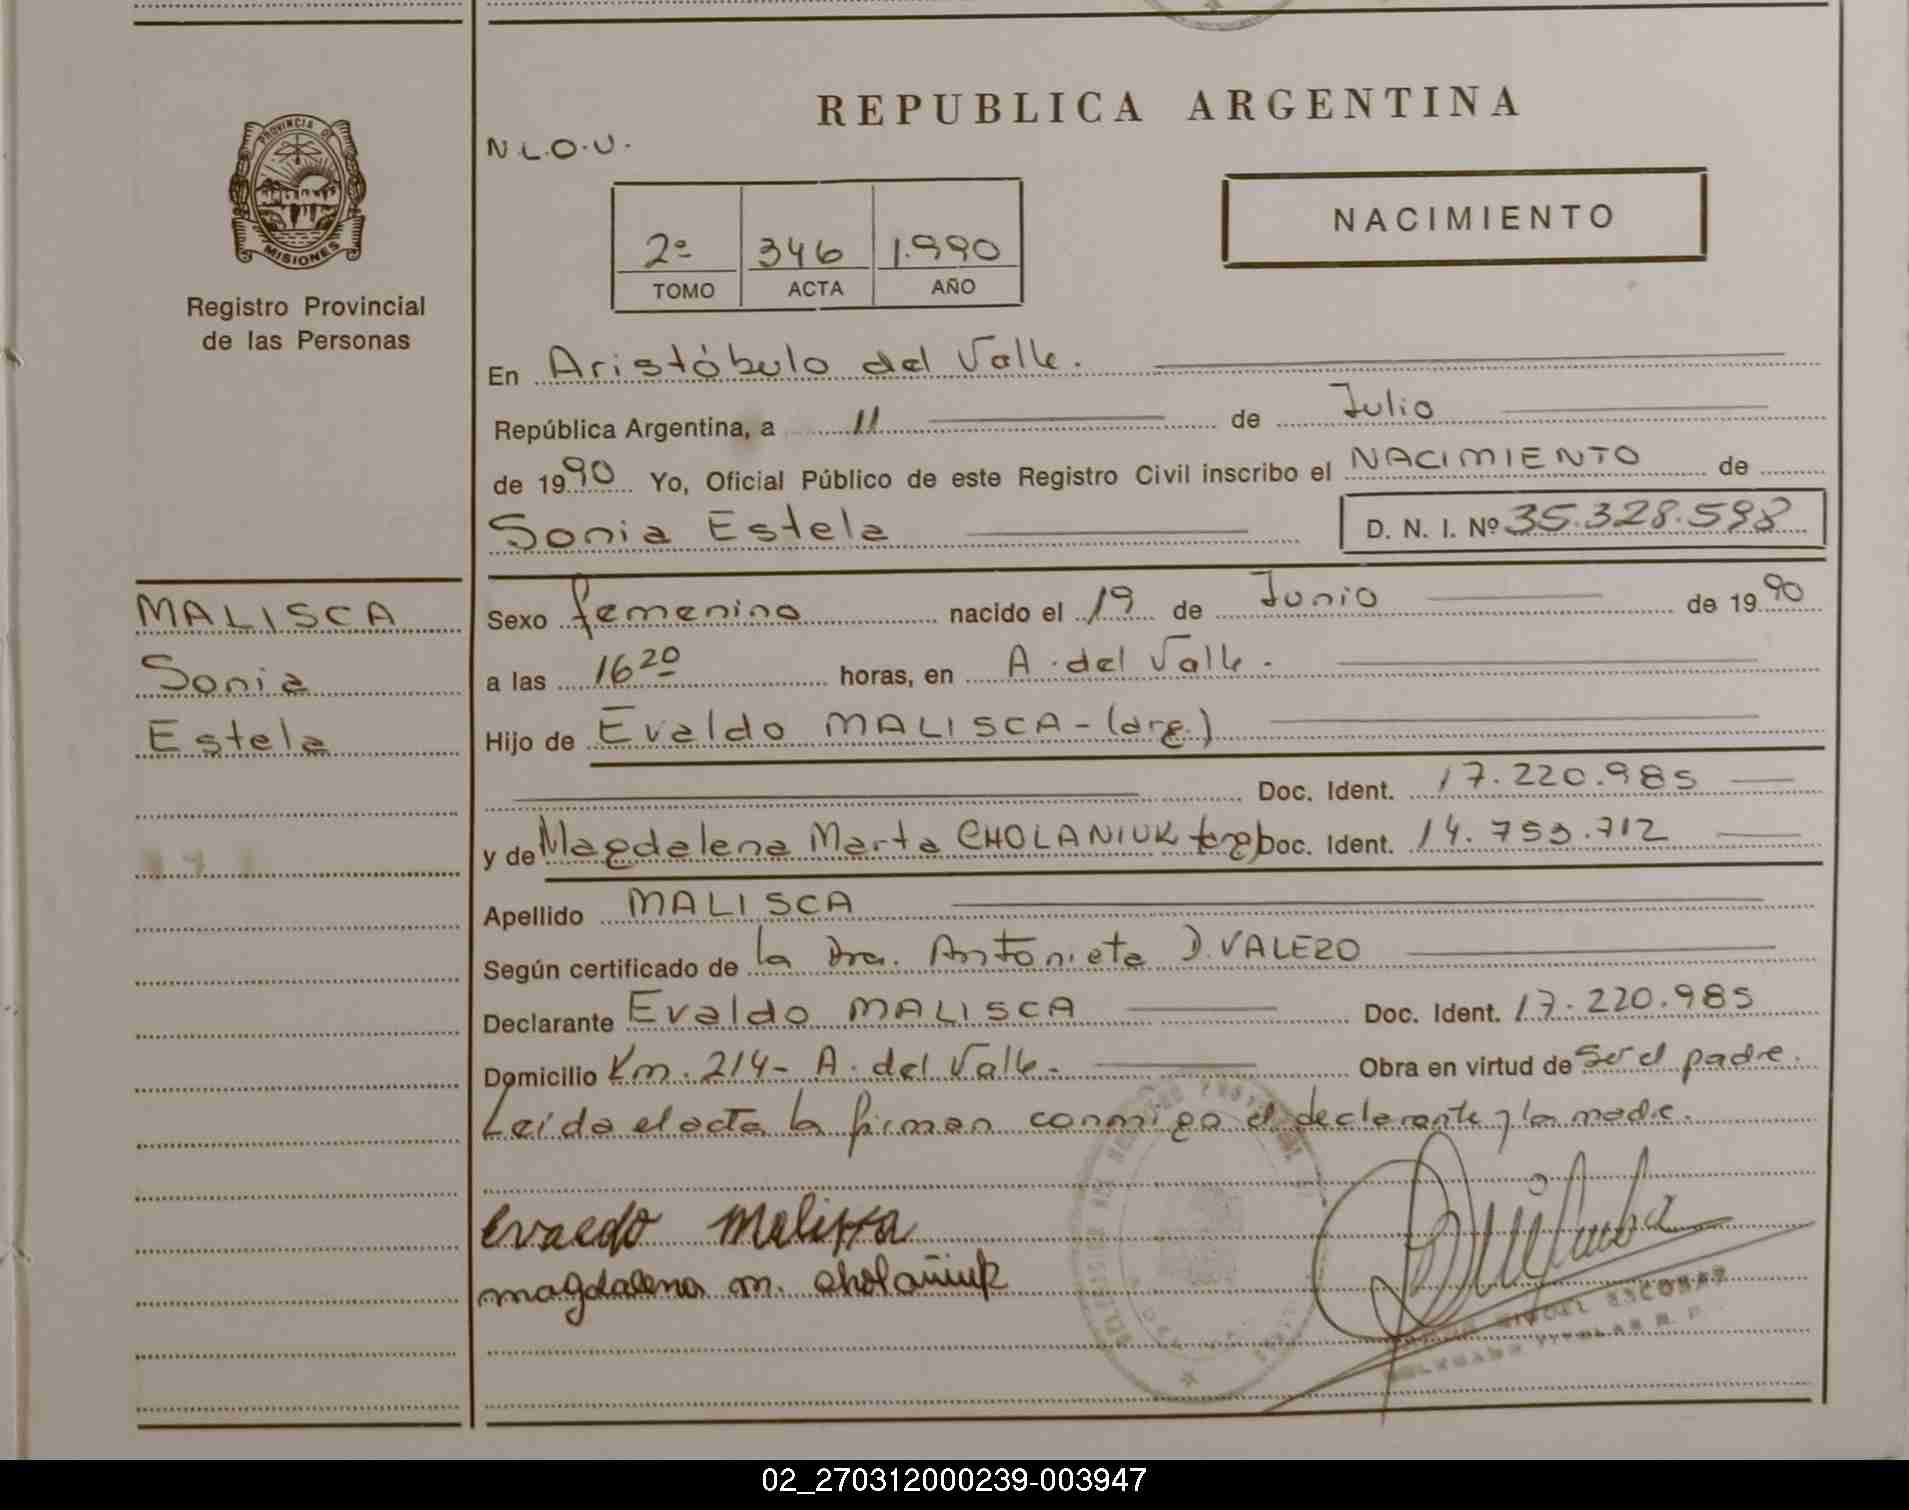 REPUBLICA ARGENTINA
PROVINCIA DE
MISIONES
Registro Provincial
de las Personas
N.L.O.U.
2º 346 1.990
TOMO ACTA AÑO
NACIMIENTO
En Aristóbulo del Valle.
República Argentina, a 11 de Julio
de 1990 Yo, Oficial Público de este Registro Civil inscribo el NACIMIENTO de
Sonia Estela D. N. I. Nº 35.328.598
MALISCA
Sonia
Estela
Sexo femenino nacido el 19 de Junio de 1990
a las 16 20 horas, en A. del Valle.
Hijo de Evaldo MALISCA - (arg.)
Doc. Ident. 17.220.985
y de Magdalena Marta CHOLANIUK (arg) Doc. Ident. 14.753.712
Apellido MALISCA
Según certificado de la Dra. Antonieta D. VALEZO
Declarante Evaldo MALISCA Doc. Ident. 17.220.985
Domicilio Km. 214 - A. del Valle. Obra en virtud de Ser el padre.
Leída el acta la firman conmigo el declarante y la madre.
Evaldo Malisca
magdalena m. cholañiuk
MIGUEL ESCOBAR
DELEGADO TITULAR R. P.
02_270312000239-003947